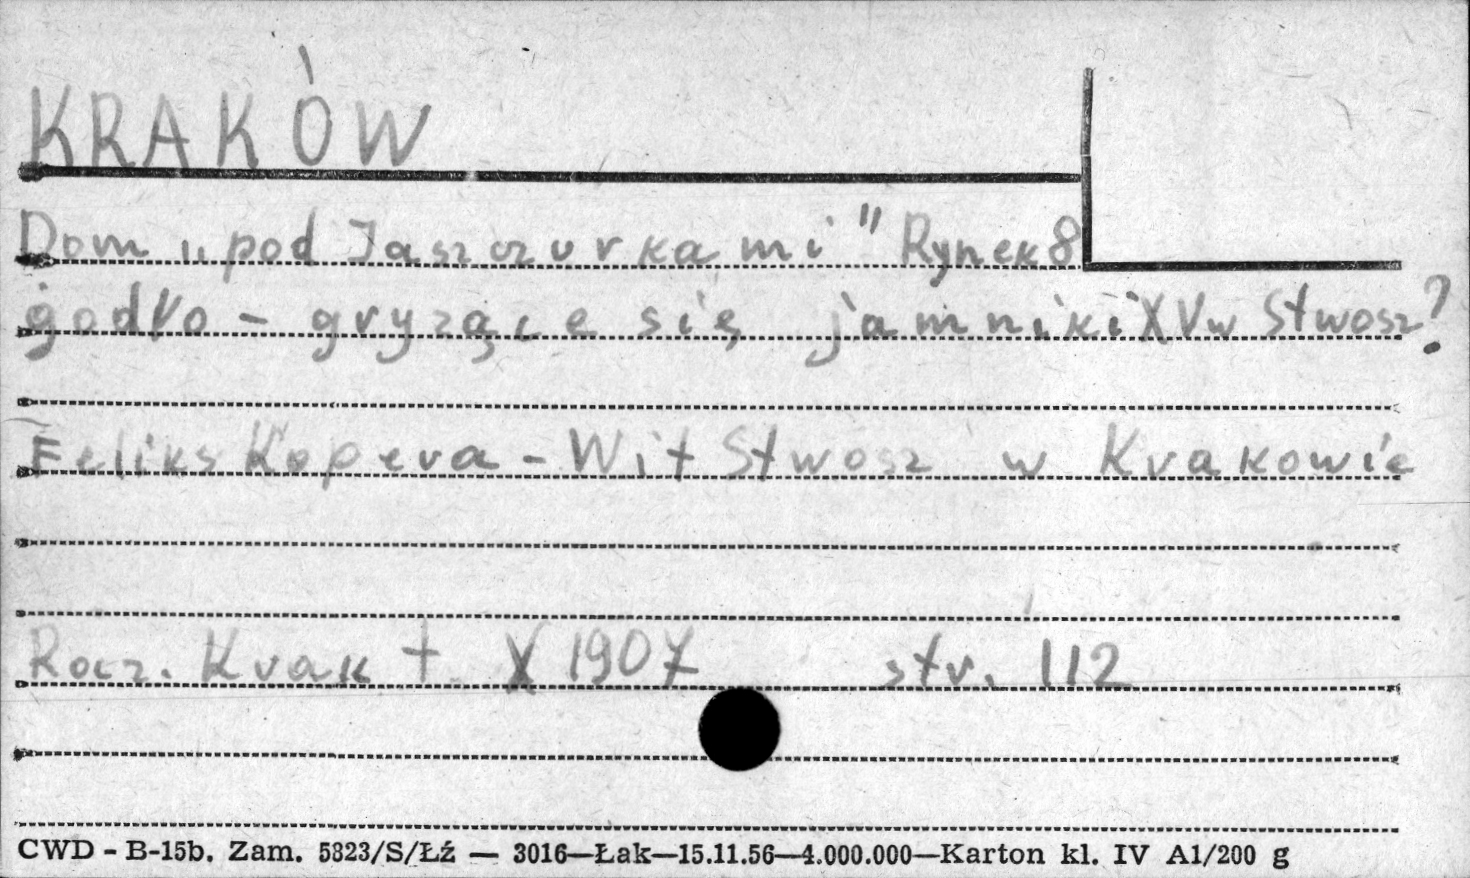 KRAKÓW
Dom „pod Jaszczurkami" Rynek 8
godło - gryzące się jamniki XV w Stwosz?
Feliks Kopera - Wit Stwosz w Krakowie
Rocz. Krak t. X 1907 str. 112
CWD - B-15b. Zam. 5823/S/Łź — 3016—Łak—15.11.56—4.000.000—Karton kl. IV A1/200 g